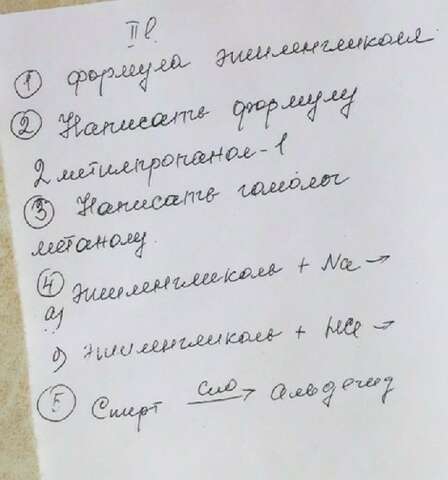 II в.
① Формула этиленгликоля
② Написать формулу
2 метилпропанол-1
③ Написать гомологи
метанолу.
④ Этиленгликоль + Na →
а)
б) Этиленгликоль + HCl →
⑤ Спирт CuO → Альдегид